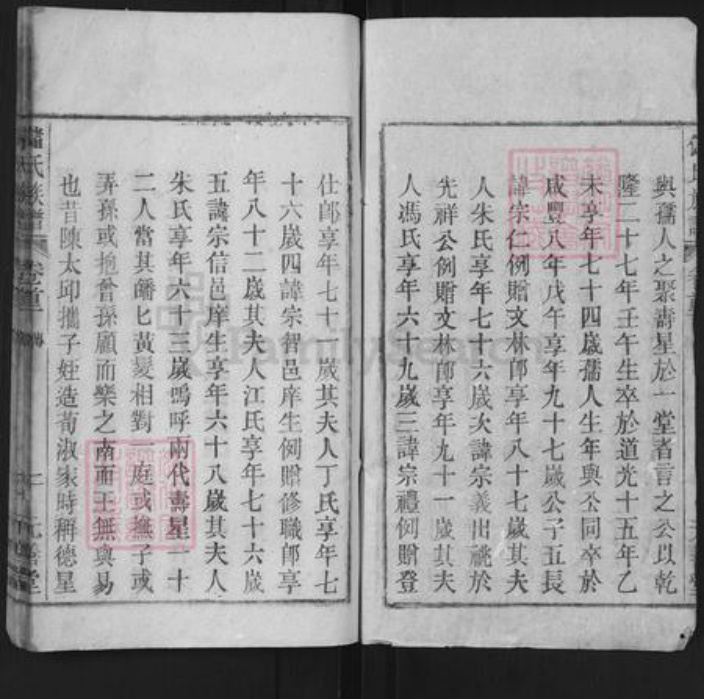 與孺人之聚壽星於一堂者言之公以乾
隆二十七年壬午生卒於道光十五年乙
未享年七十四歲孺人生年與公同卒於
咸豐八年戊午享年九十七歲公子五長
諱宗仁例贈文林郎享年八十七歲其夫
人朱氏享年七十六歲次諱宗義出祧於
先祥公例贈文林郎享年九十一歲其夫
人馮氏享年六十九歲三諱宗禮例贈登
仕郎享年七十 歲其夫人丁氏享年七
十六歲四諱宗智邑庠生例贈修職郎享
年八十二歲其夫人江氏享年七十六歲
五諱宗信邑庠生享年六十八歲其夫人
朱氏享年六十三歲嗚呼兩代壽星一十
二人當其皤匕黃髮相對一庭或撫子或
弄孫或抱曾孫顧而樂之南面王無與易
也昔陳太邱攜子姪造荀淑家時稱德星
氏族譜 卷首 傳 元善堂
FamilySearch